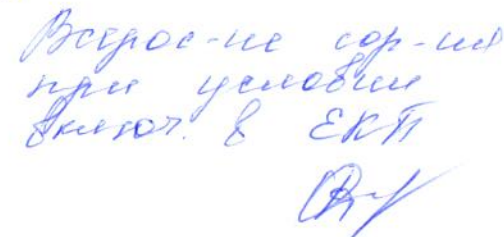 Всерос-ие сор-ия
при условии
включ. в ЕКП